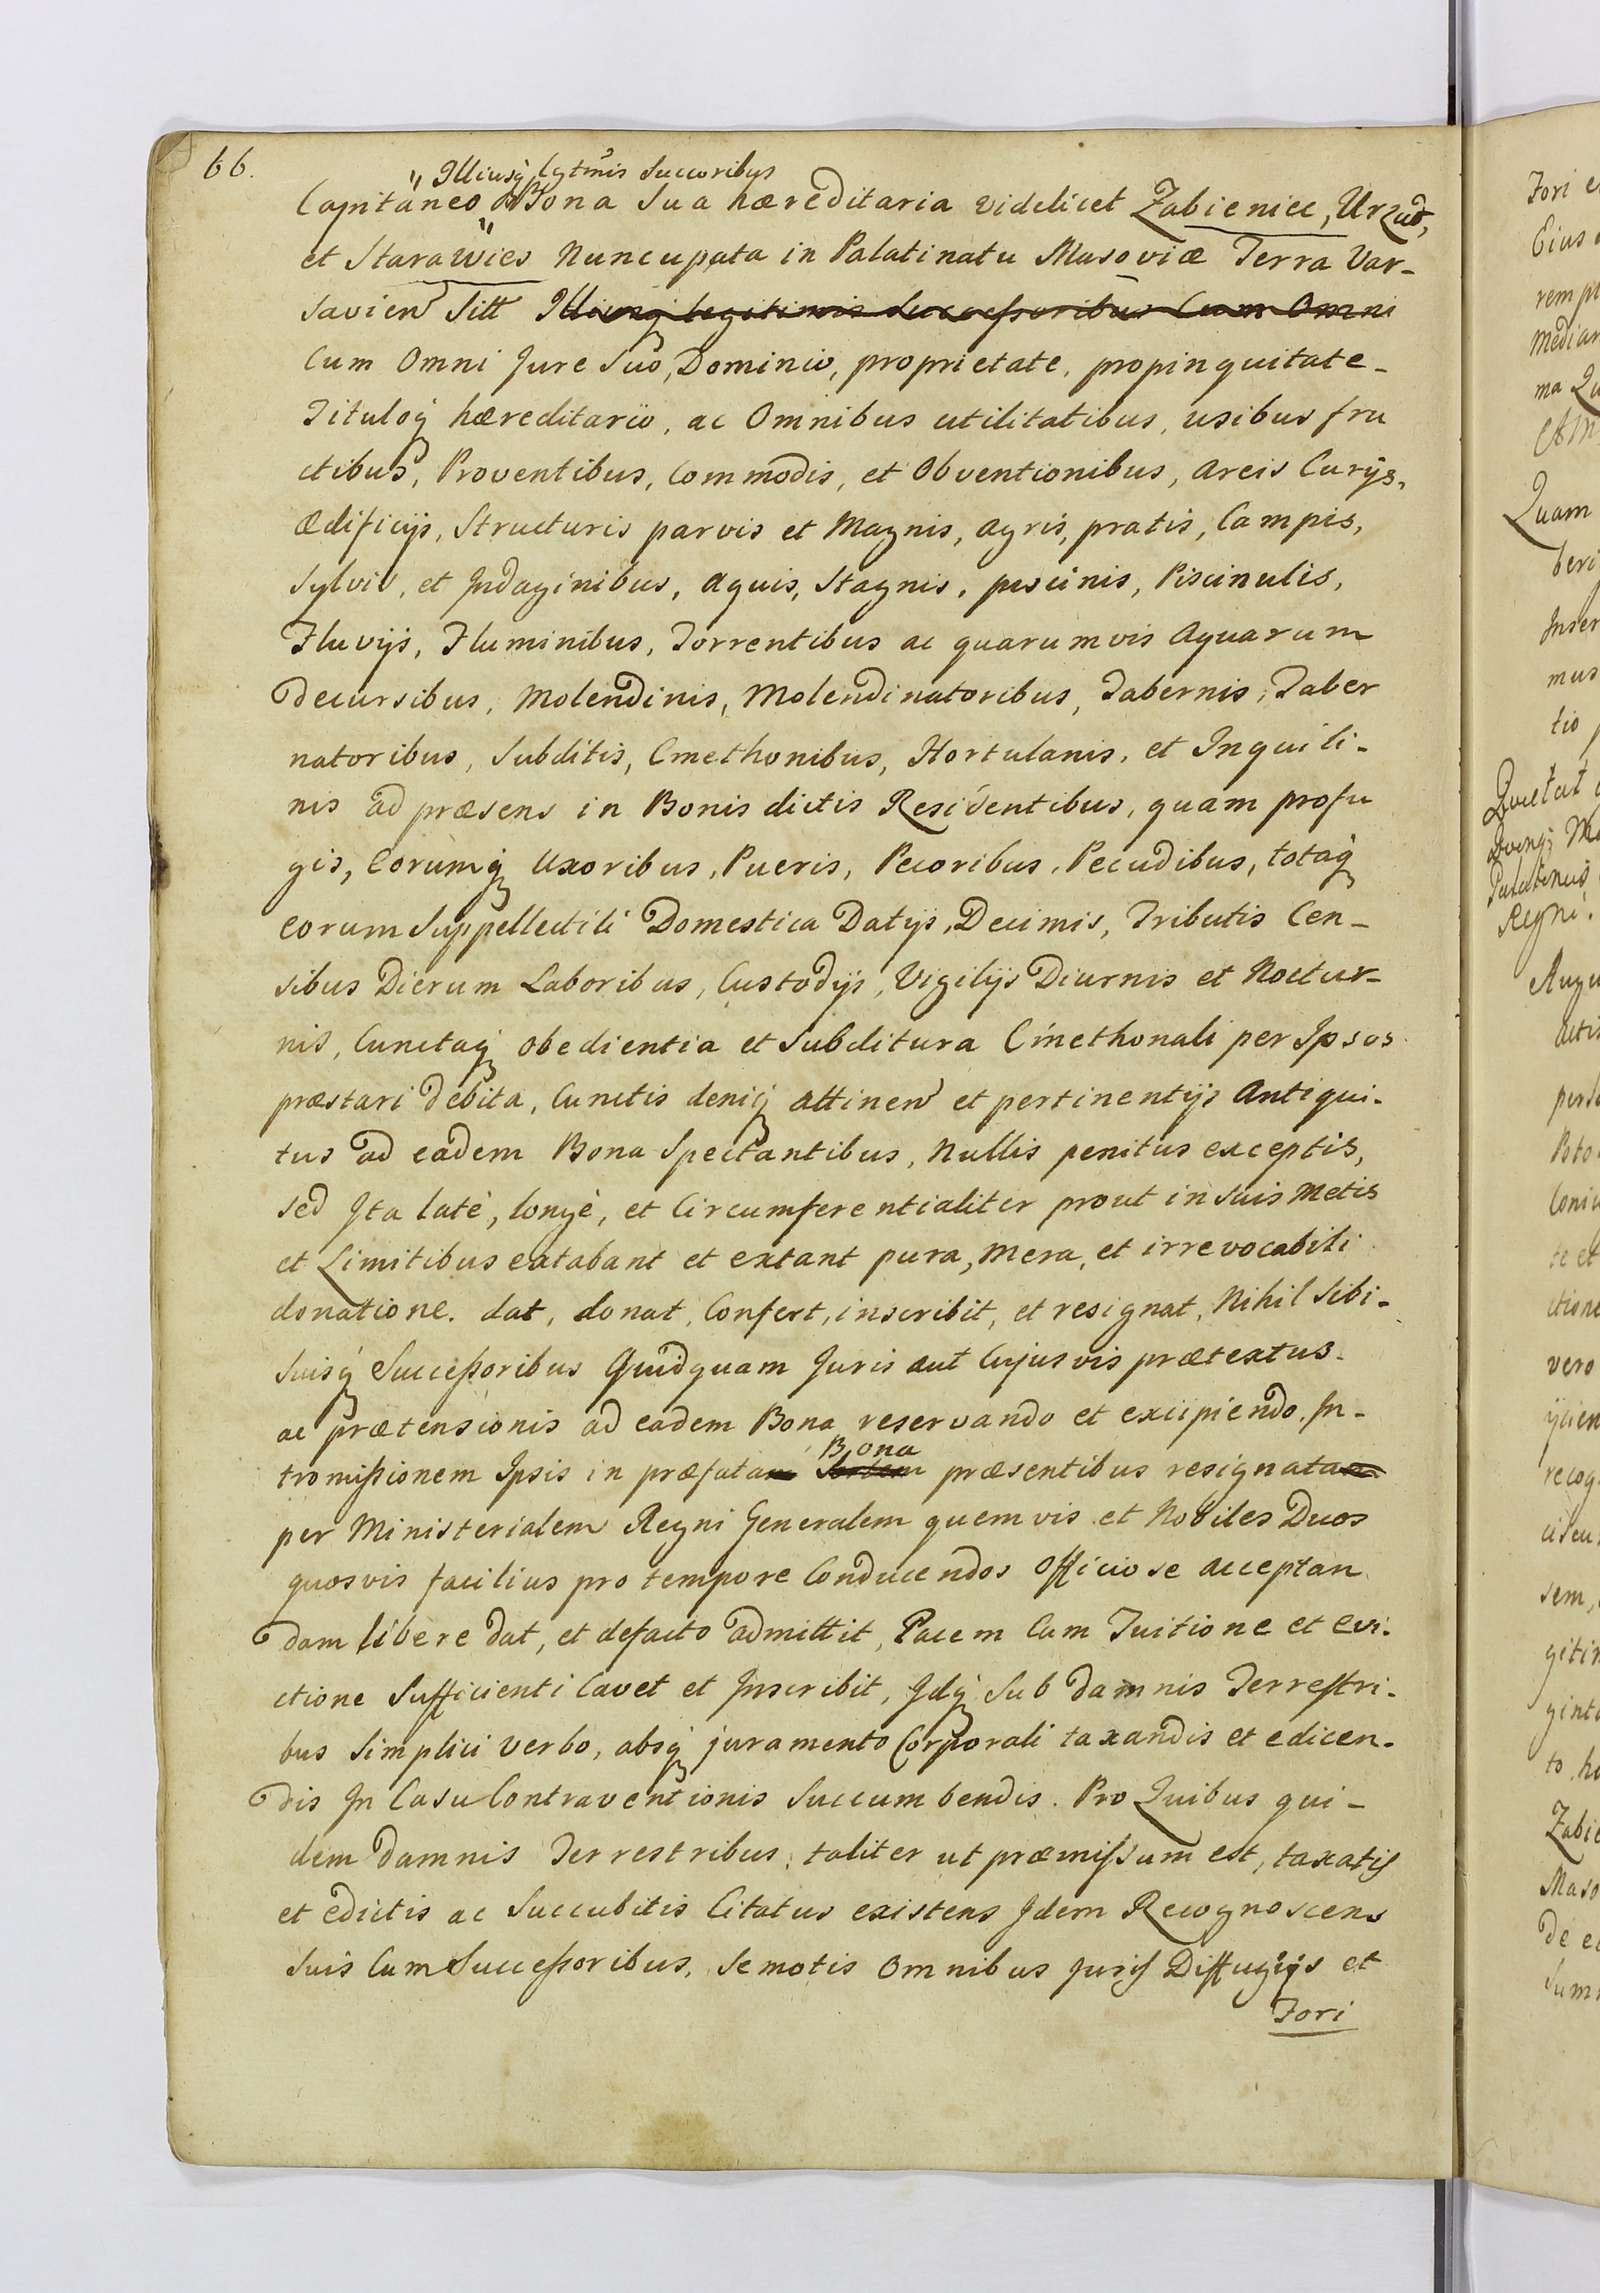 66.
Illiusq̃ lgtmis Succoribus
Capitaneo Bona Sua hæreditaria videlicet Zabieniec, Urzud,
et Starawies Nuncupata in Palatinatu Masoviæ Terra Var-
savien Sitt Illiusq̃ legitimis Succeſsoribus Cum Omni
Cum Omni Jure Suo, Dominio, proprietate, propinquitate-
Tituloq̃ hæreditario, ac Omnibus utilitatibus, usibus fru
ctibus, Proventibus, Commodis, et Obventionibus, areis Curijs,
ædificijs, Structuris parvis et Magnis, agris, pratis, Campis,
Sylvis, et Indaginibus, aquis, Stagnis, piscinis, Piscinulis,
Fluvijs, Fluminibus, Torrentibus ac quarumvis Aquarum
decursibus, Molendinis, Molendinatoribus, Tabernis, Taber
natoribus, Subditis, Cmethonibus, Hortulanis, et Inquili-
nis ad præsens in Bonis dictis Residentibus, quam profu
gis, Eorumq̃ Uxoribus, Pueris, Pecoribus, Pecudibus, totaq̃
eorum Suppellectili Domestica Datijs, Decimis, Tributis Cen-
sibus Dierum Laboribus, Custodijs, Vigilijs Diurnis et Noctur-
nis, Cunctaq̃ obedientia et Subditura Cmethonali per Ipsos
præstari debita, Cunctis deniq̃ attinen et pertinentijs Antiqui-
tus ad eadem Bona Spectantibus, Nullis penitus exceptis,
sed Ita latè, longè, et Circumferentialiter prout in Suis Metis
et Limitibus extabant et extant pura, mera, et irrevocabili
donatione. dat, donat, Confert, inscribit, et resignat, Nihil Sibi-
Suisq̃ Succeſsoribus Quidquam Juris aut Cujusvis prætextus-
ac prætensionis ad eadem Bona reservando et excipiendo. In-
Bona
tromiſsionem Ipsis in præfatam Sortem præsentibus resignatam
per Ministerialem Regni Generalem quemvis et Nobiles Duos
quosvis facilius pro tempore Conducendos Officiose acceptan
dam libere dat, et defacto admittit, Pacem Cum Tuitione et evi-
ctione Sufficienti Cavet et Inscribit, Idq̃ Sub damnis Terreſtri-
bus Simplici verbo, absq̃ juramento Corporali taxandis et edicen-
dis In Casu Contraventionis Succumbendis. Pro Quibus qui-
dem damnis Terrestribus, taliter ut præmiſsum est, taxatis
et edictis ac Succubitis Citatus existens Idem Recognoscens
Suis Cum Succeſsoribus, Semotis Omnibus Juris Diffugijs et
Fori
Quam
Regni.
vero